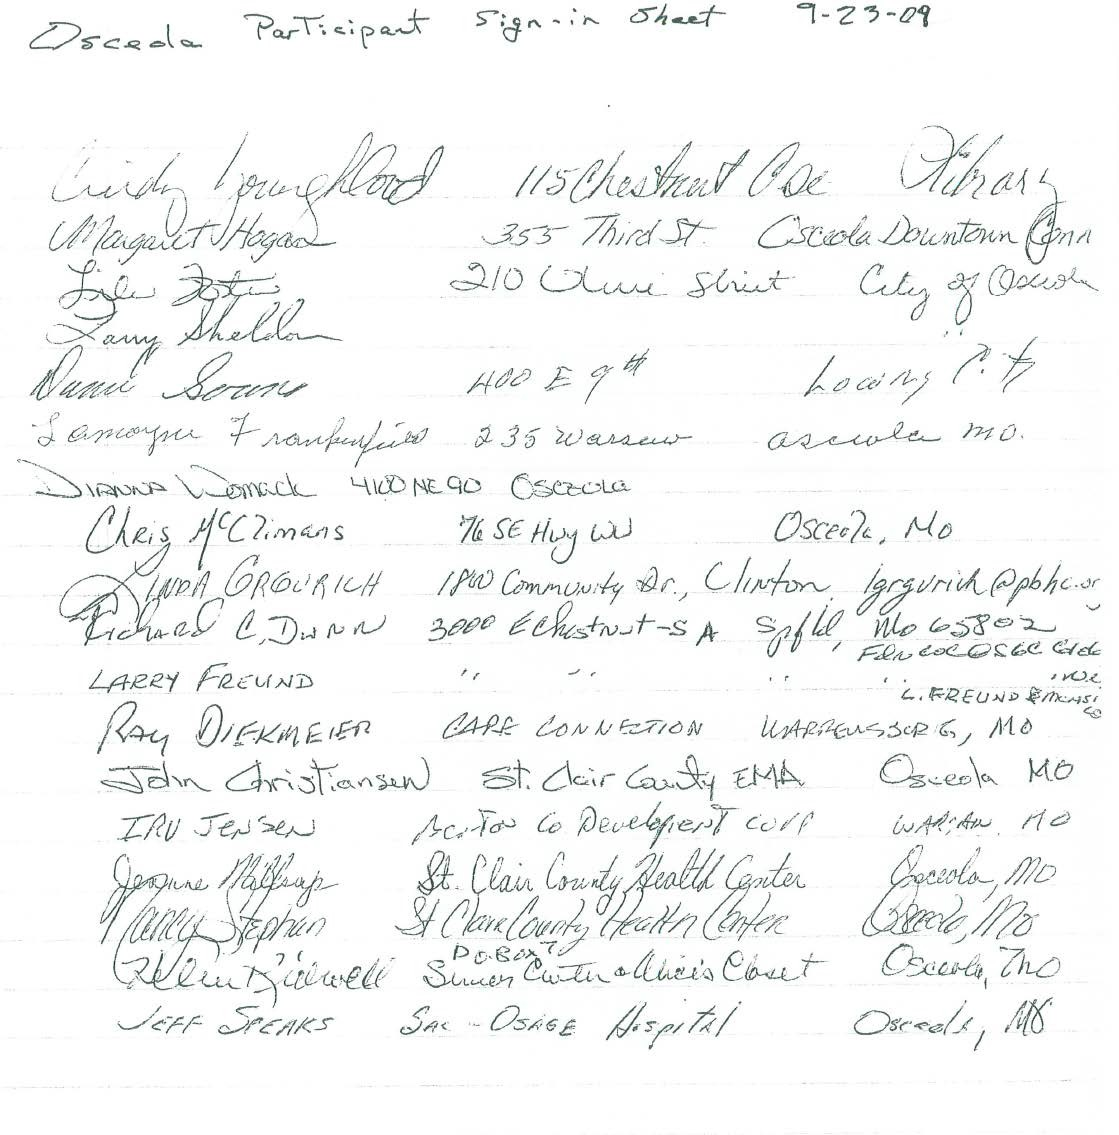 Osceola Participant Sign-in Sheet 9-23-09
Cindy Youngblood 115 Chestnut Osc Library
Margaret Hogan 355 Third St. Osceola Downtown Comm
Lyle Foster 210 Olive Street City of Osceola
Larry Sheldon " "
400 E 9th
235 Warsaw Osceola MO.
DIANNA Womack 4100 NE 90 OSCEOLA
Chris McClimans 76 SE Hwy WW Osceola, Mo
LINDA GRGURICH 1800 Community Dr., Clinton lgrgurich@pbhc.or
Richard C. Dunn 3000 E Chestnut-S A Spfld, Mo 65802
LARRY FREUND " " " "
L. FREUND
RAY DIEKMEIER CARE CONNECTION WARRENSBURG, MO
John Christiansen St. Clair County EMA Osceola MO
IRV JENSEN Benton Co Development Corp WARSAW MO
Jeanne Millsap St. Clair County Health Center Osceola, MO
Nancy Stephan St Clair County Health Center Osceola, Mo
P.O. Box
Helen Kidwell Senior Center & Alicis Closet Osceola, Mo
JEFF SPEAKS SAC-OSAGE Hospital Osceola, MO